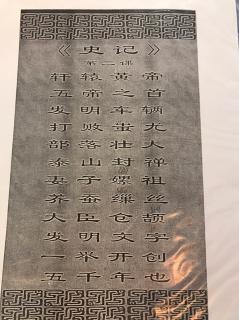 《史记》
第二课
轩辕黄帝
五帝之首
发明车辆
打败蚩尤
部落壮大
泰山封禅
妻子嫘祖
养蚕缫丝
大臣仓颉
发明文字
一举开创
五千年也